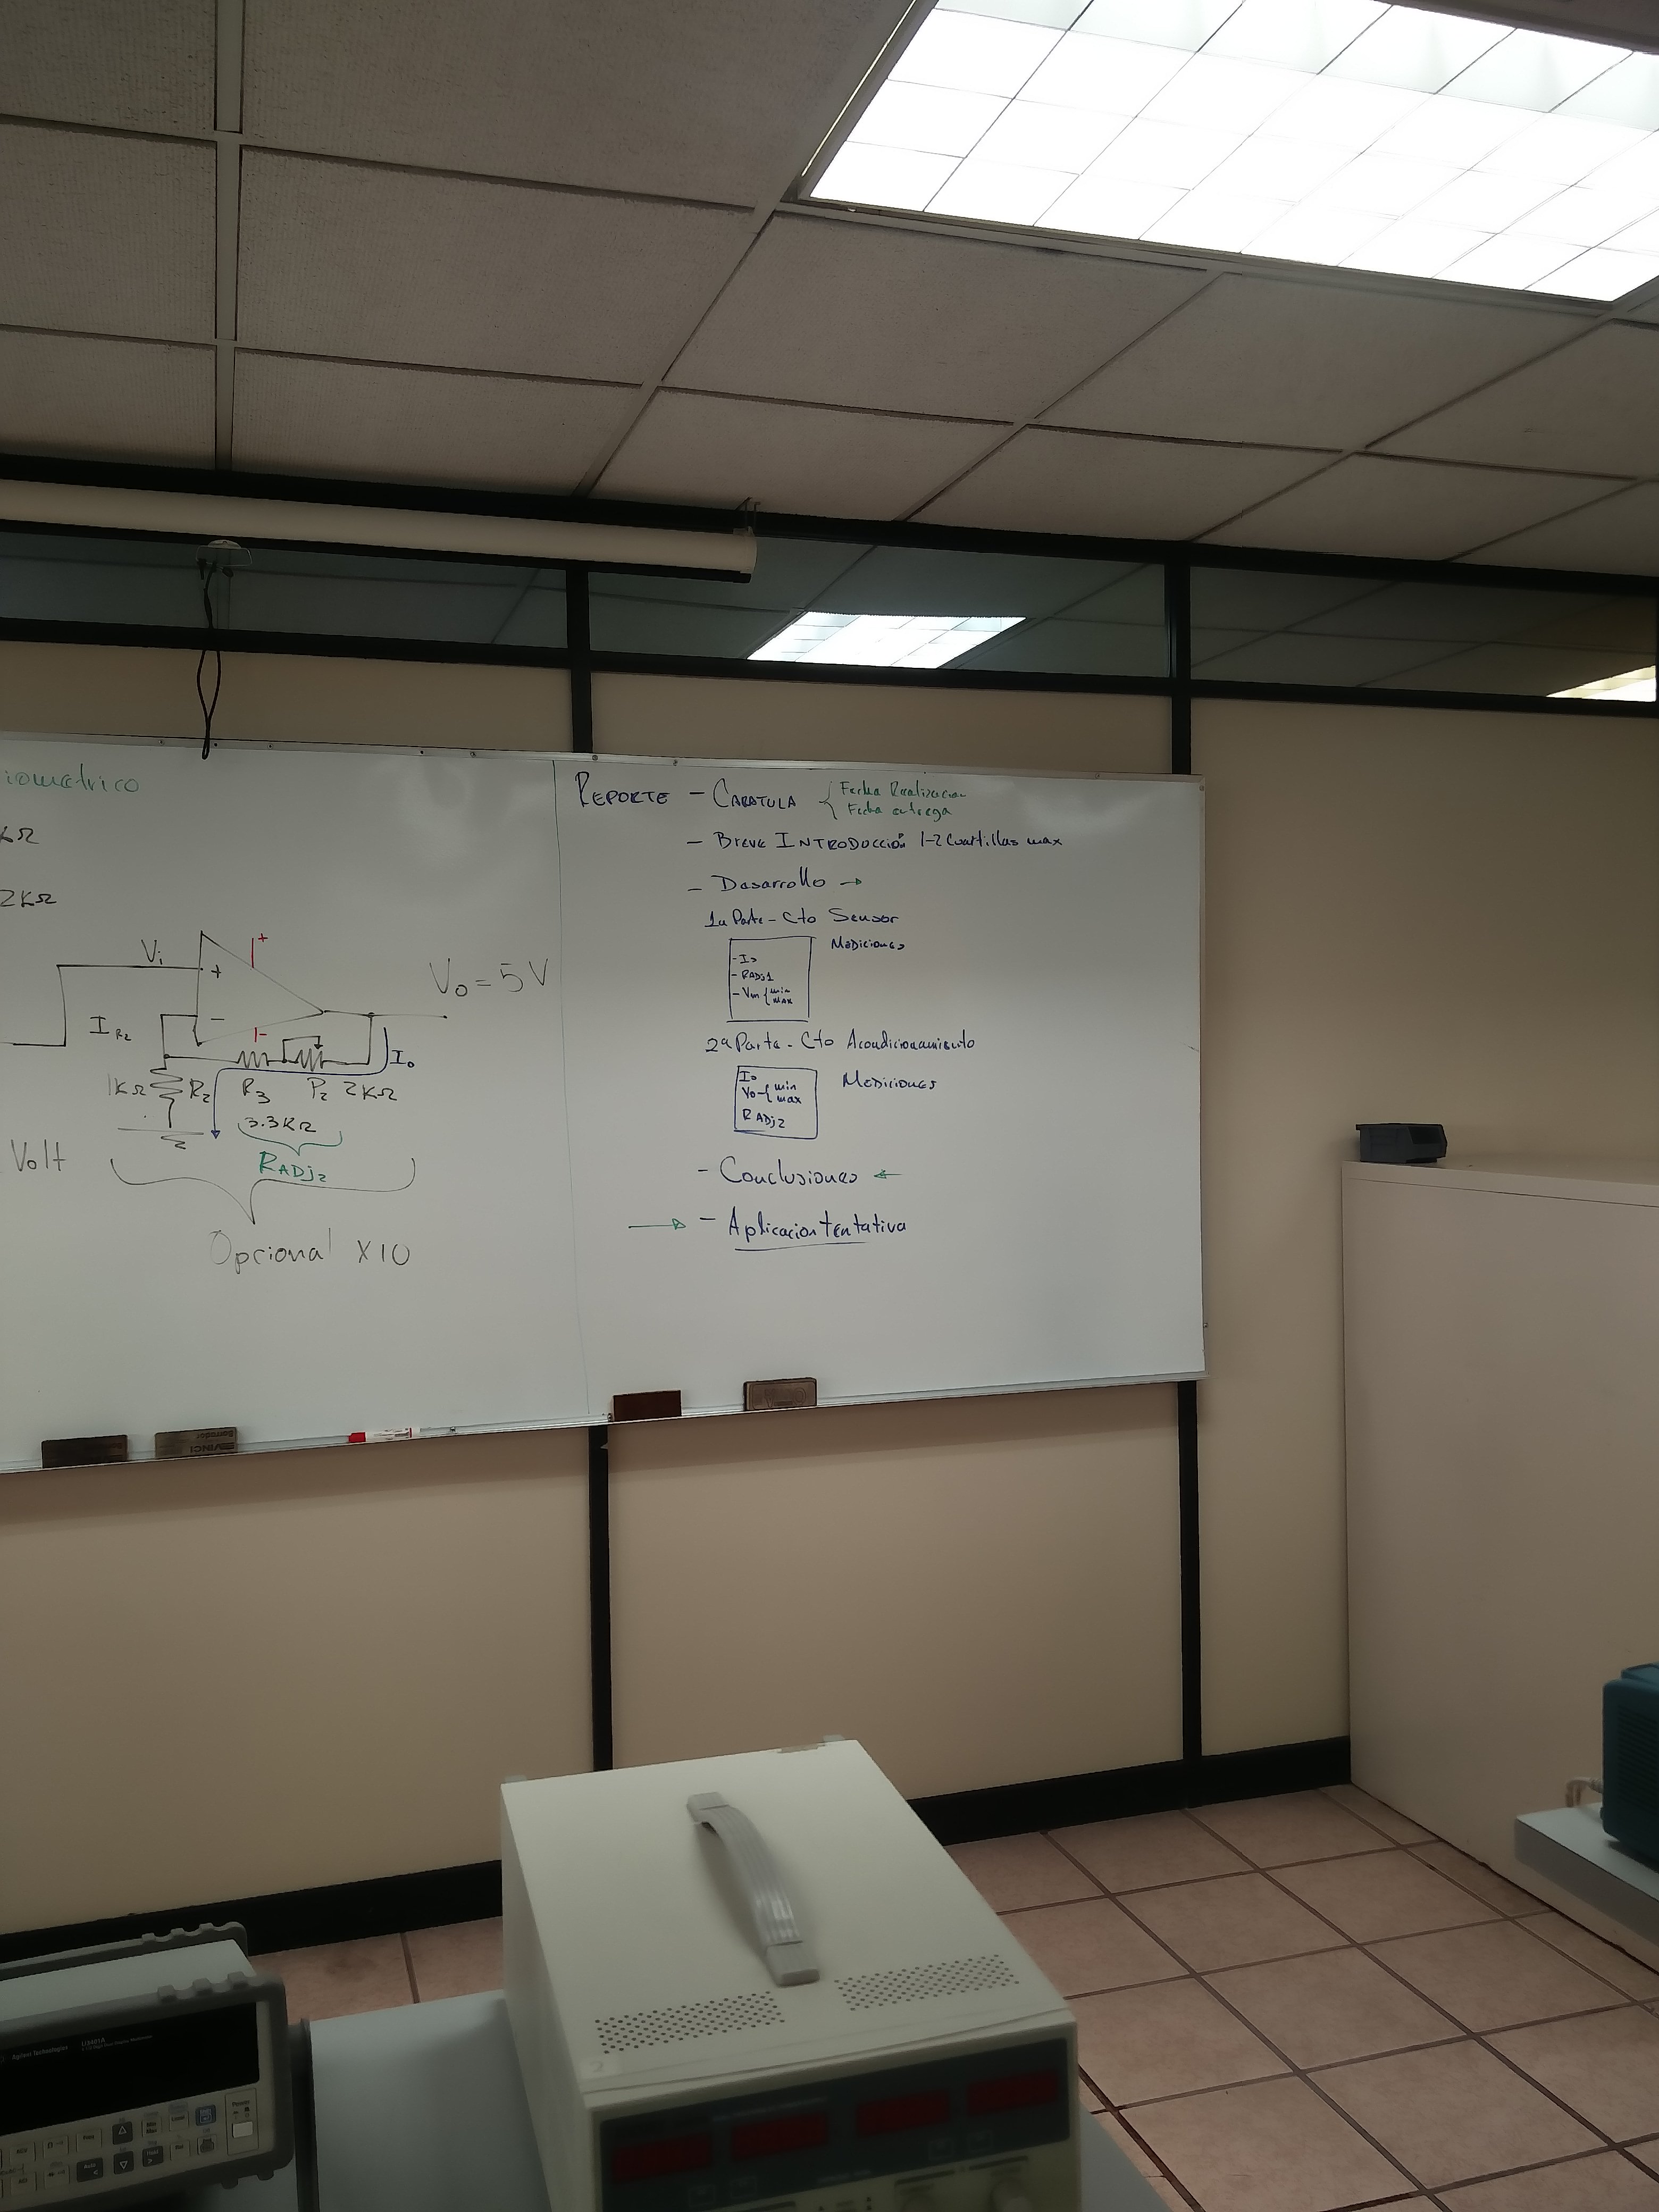 iometrico
KΩ
2KΩ
Vi
+
+
-
-
Vo = 5V
IR2
Io
1KΩ R2 R3 P2 2KΩ
3.3KΩ
RADj2
Volt
Opcional X10
REPORTE - CARATULA { Fecha Realizacion
Fecha entrega
- Breve INTRODUCCIÓN 1-2 Cuartillas max
- Desarrollo →
1a Parte - Cto Sensor
Mediciones
- Io
- RADj1
- Vin { min
max
2a Parte - Cto Acondicionamiento
Mediciones
Io
Vo { min
max
RADj2
- Conclusiones ←
→ - Aplicacion Tentativa
VINCI
Borrador
Agilent Technologies
U3401A
Power